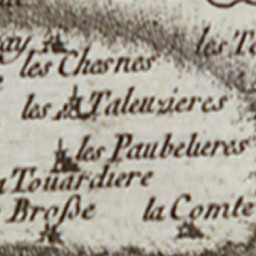 les Chesnes
les Taleuzieres
les Paubelieres
Touardiere
Broße la Comte